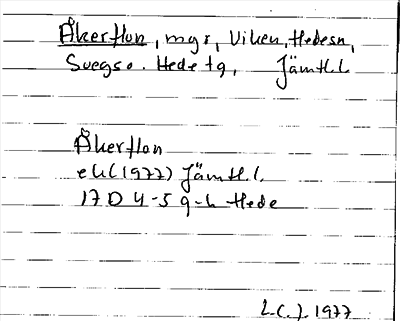 Åkerflon, mgr, Viken, Hedesn,
Svegs o. Hede tg, Jämtl.l.
Åkerflon
ek (1977) Jämtl.l.
17 D 4-5 g-h Hede
L.C.J. 1977